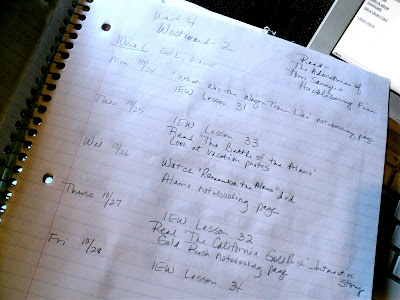 Unit 4
Westward - 2
Read -
The Adventures of
Tom Sawyer &
Huckleberry Finn
Week 1
Mon 10/24
"What Was the Wagon Train Like" Notebooking page
IEW Lesson 31
Tues 10/25
IEW Lesson 33
Read "The Battle of the Alamo"
Look at vacation photos
Wed 10/26
Watch "Remember the Alamo" dvd
Alamo Notebooking page
Thurs 10/27
IEW Lesson 32
Read "The California Gold Rush" Interactive
Gold Rush Notebooking page
Fri 10/28
IEW Lesson 34